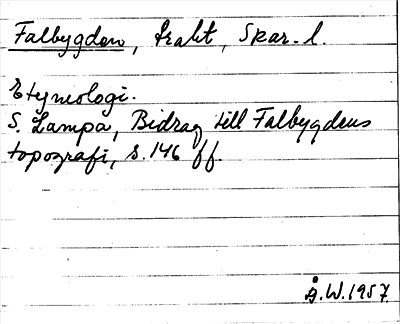 Falbygden, trakt, Skar. l.
Etymologi.
S. Lampa, Bidrag till Falbygdens
topografi, s. 146 ff.
Å.W. 1957.